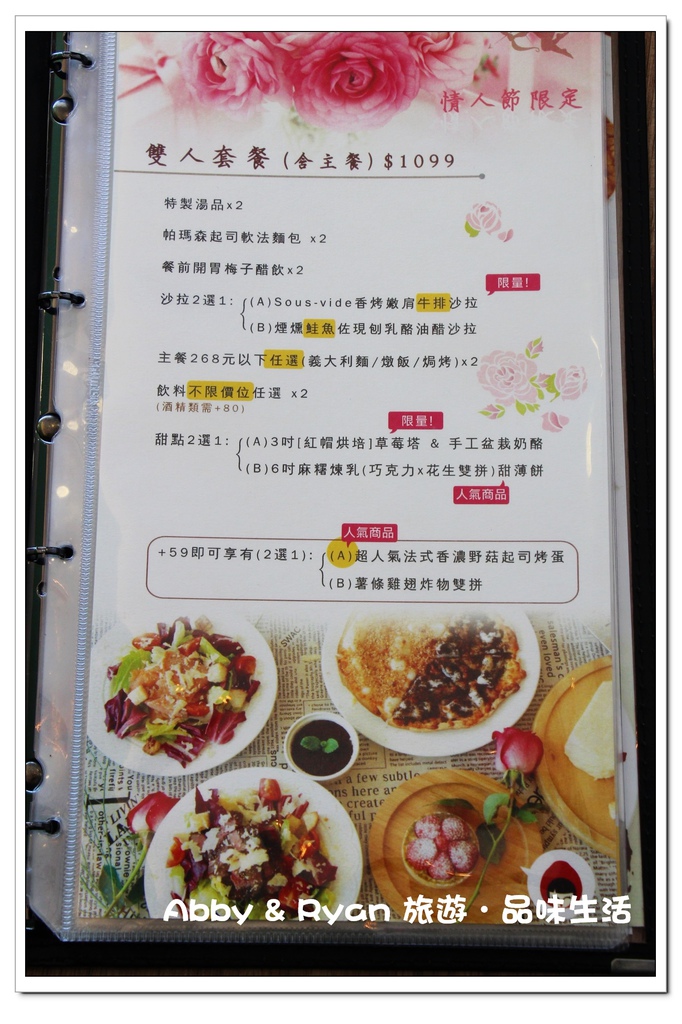 情人節限定
雙人套餐(含主餐)$1099
特製湯品x2
帕瑪森起司軟法麵包 x2
餐前開胃梅子醋飲x2
限量!
沙拉2選1: (A)Sous-vide香烤嫩肩牛排沙拉
(B)煙燻鮭魚佐現刨乳酪油醋沙拉
主餐268元以下任選(義大利麵/燉飯/焗烤)x2
飲料不限價位任選 x2
(酒精類需+80)
限量!
甜點2選1: (A)3吋[紅帽烘培]草莓塔 & 手工盆栽奶酪
(B)6吋麻糬煉乳(巧克力x花生雙拼)甜薄餅
人氣商品
人氣商品
+59即可享有(2選1): (A)超人氣法式香濃野菇起司烤蛋
(B)薯條雞翅炸物雙拼
a few subtle
Abby & Ryan 旅遊·品味生活